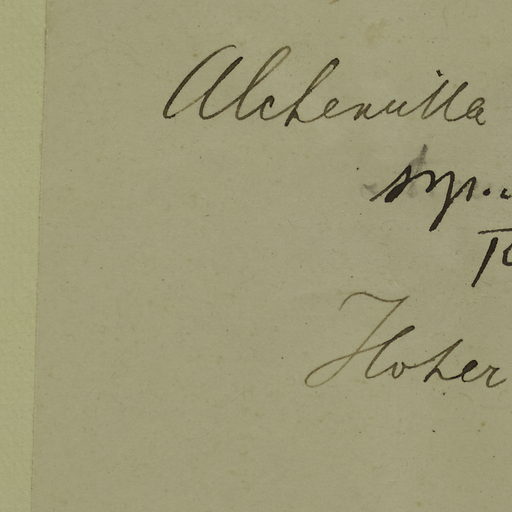 Alchemilla
syn.
Hoher